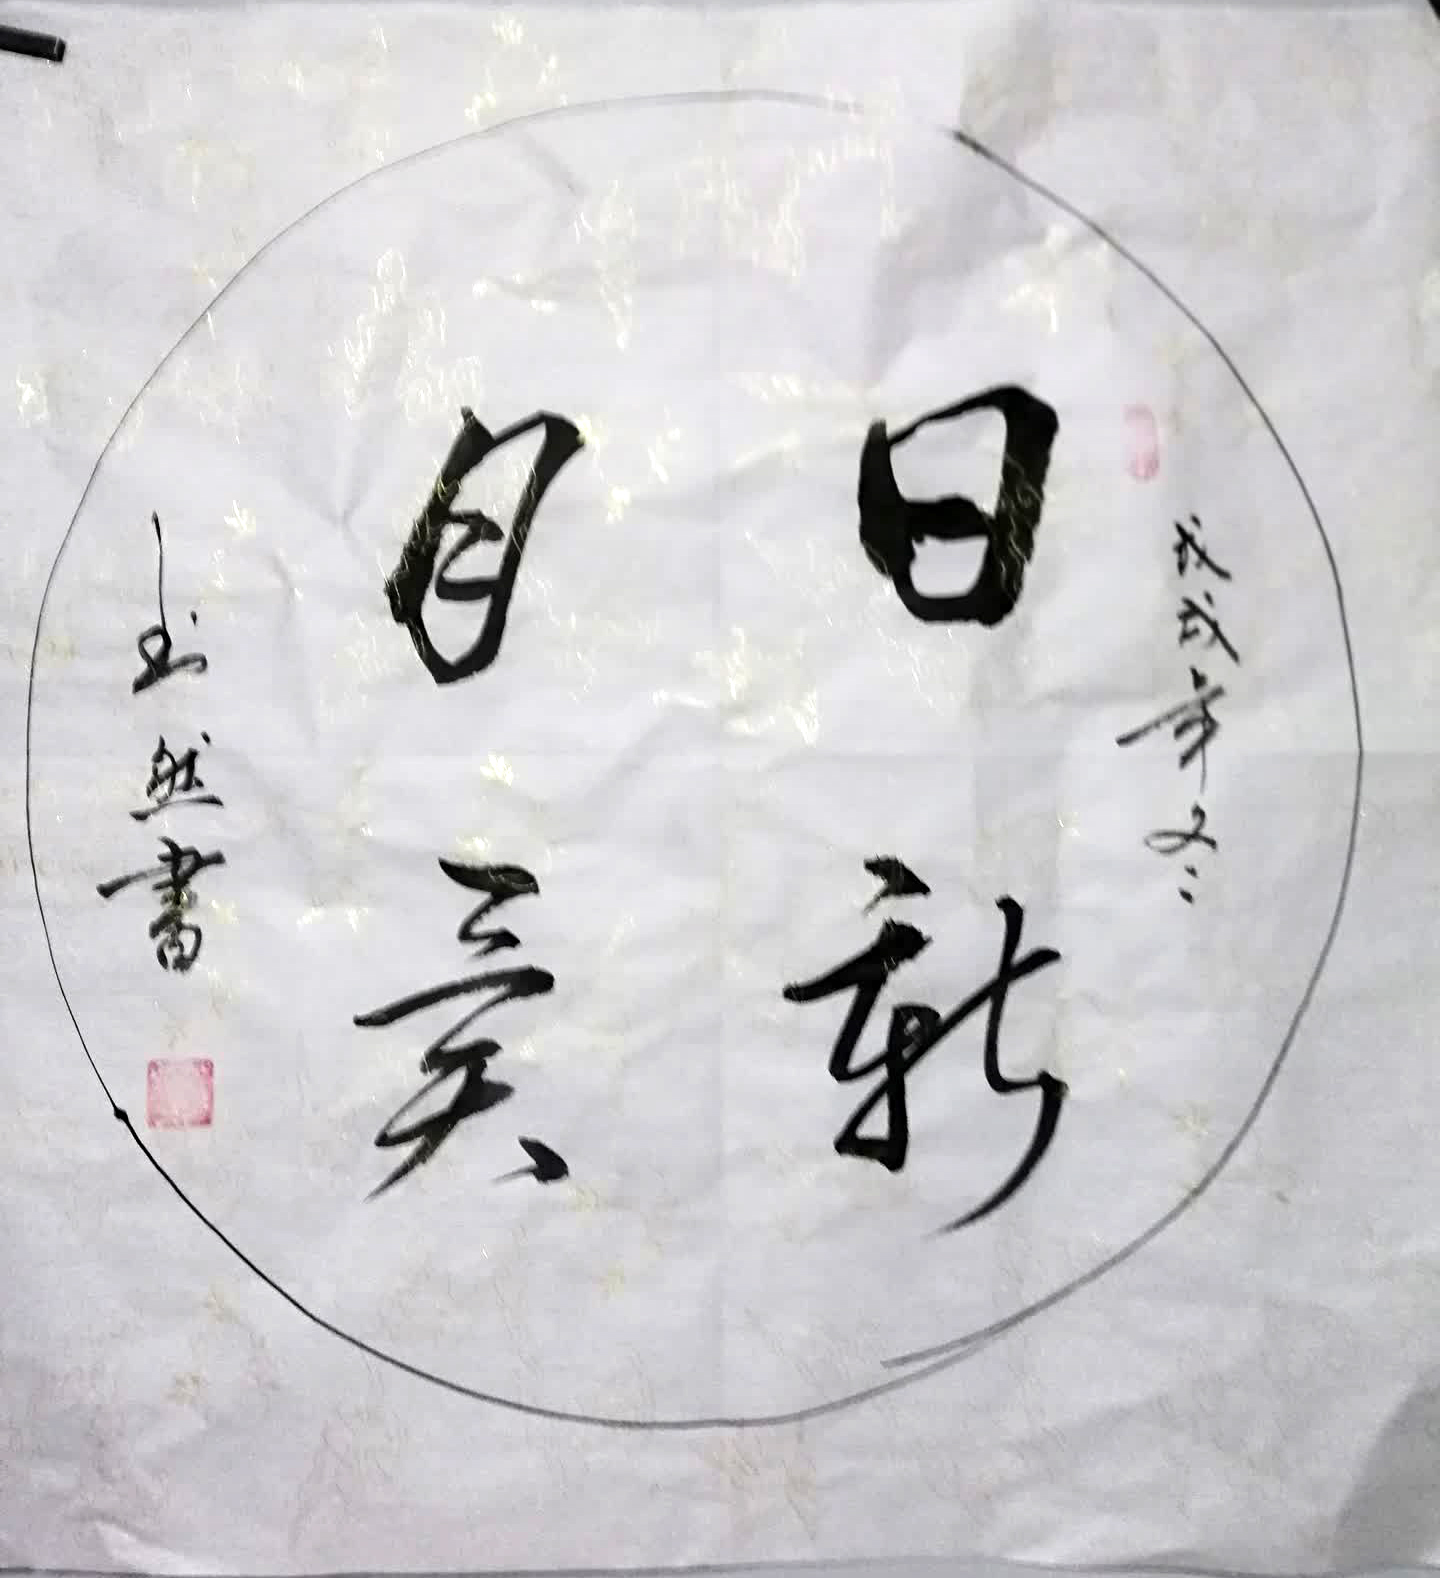 戊戌年冬
日新
月异
然書